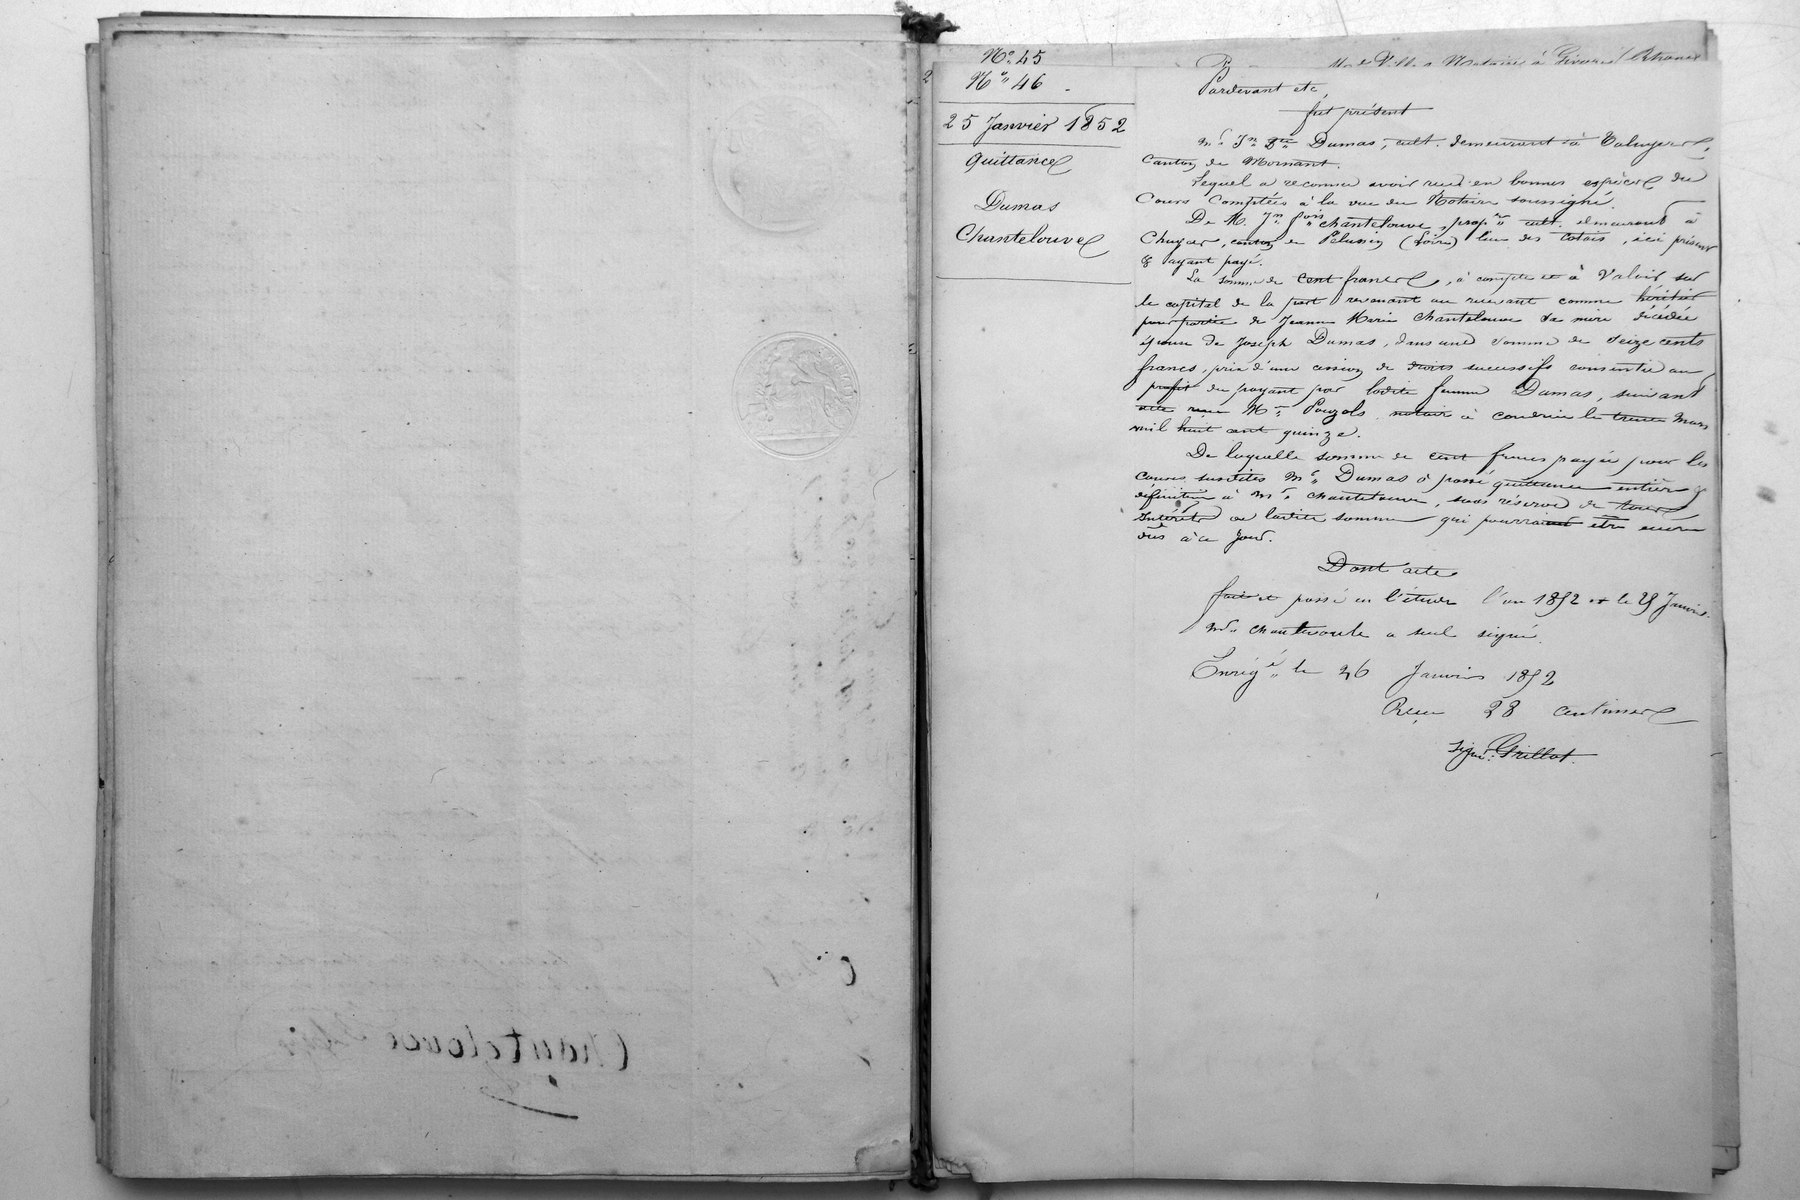 No. 45
Me de Ville Notaire à Givors (Rhône)
No. 46
25 Janvier 1852
Quittance
Dumas
Chantelouve
Pardevant etc,
fut présent
Mr. Jn Bte Dumas, cult. demeurant à Taluyers,
Canton de Mornant.
Lequel a reconnu avoir reçu en bonnes espèces du
Cours Comptées à la vue du Notaire soussigné.
De M. Jn fois Chantelouve, propre cult. demeurant à
Chuyer, canton de Pelussin (Loire) lieu des Cotois, ici présent
& ayant payé.
La somme de cent francs, à compte et à Valoir sur
le capital de la part revenant au recevant comme héritier
pour partie de Jeanne Marie Chantelouve sa mère décédée
épouse de Joseph Dumas, dans une somme de seize cents
francs, prix d'une cession de droits successifs consentie au
profit du payant par ladite femme Dumas, suivant
acte reçu Me Pouzols notaire à Condrieu le trente Mars
mil huit cent quinze.
De laquelle somme de cent francs payée pour les
causes susdites Mr. Dumas a passé quittance entière &
définitive à Mr. Chantelouve, sans réserve de tous
Intérêts de ladite somme qui pourraient être encore
dûs à ce jour.
Dont acte
fait et passé en l'étude l'an 1852 et le 25 Janvier.
Mr. Chantelouve a seul signé.
Enrégé. le 26 Janvier 1852
Reçu 28 centimes
signé: Grillot.
Chantelouve